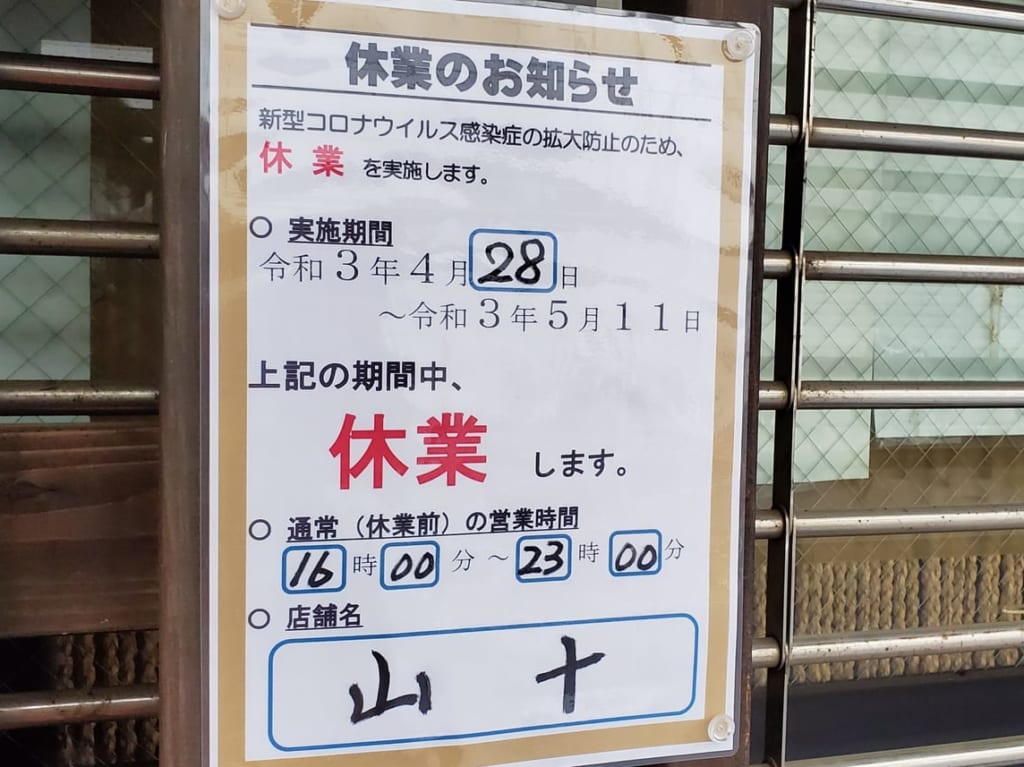 休業のお知らせ
新型コロナウイルス感染症の拡大防止のため、
休業 を実施します。
○ 実施期間
令和３年４月28日
～令和３年５月１１日
上記の期間中、
休業 します。
○ 通常（休業前）の営業時間
16時00分～23時00分
○ 店舗名
山十